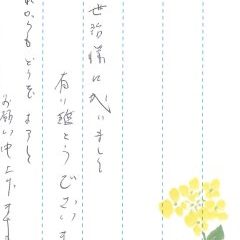 世話様になりまして
有り難とうございます
これからもどうぞよろしく
お願い申上げます